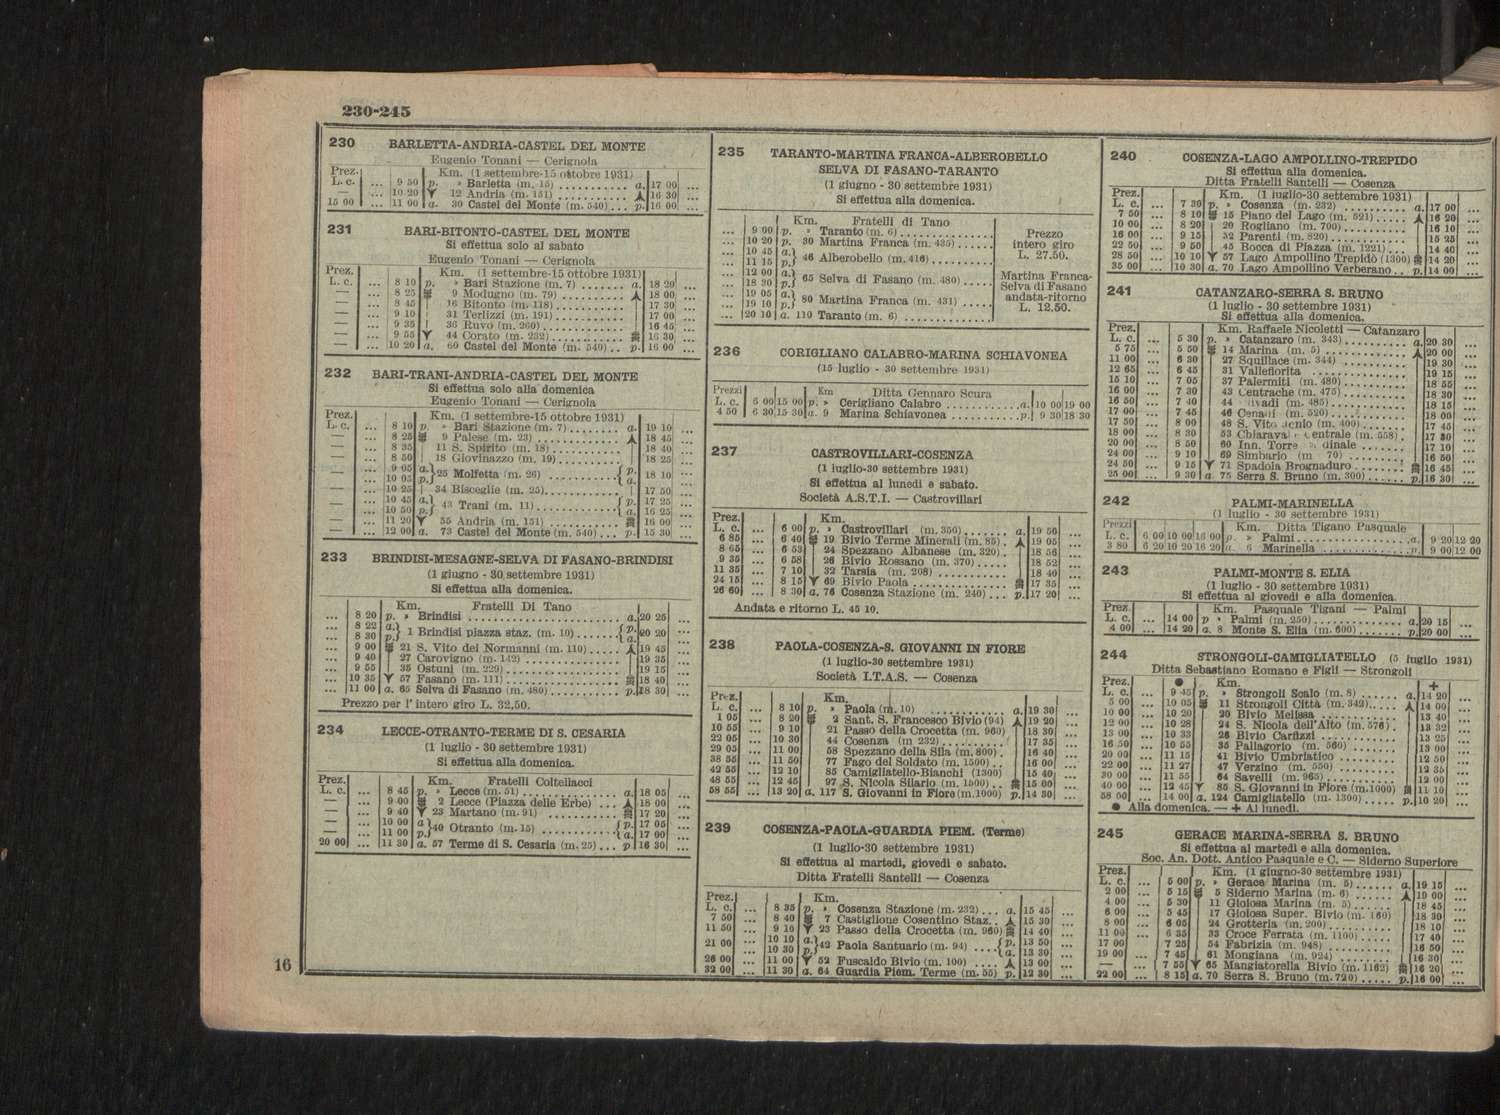 230-245
230 BARLETTA-ANDRIA-CASTEL DEL MONTE
Eugenio Tonani — Cerignola
Prez. Km. (1 settembre-15 ottobre 1931)
L. c. ... 9 50 p. » Barletta (m. 15) a. 17 00 ...
— ... 10 20 12 Andria (m. 151) 16 30 ...
15 00 ... 11 00 a. 30 Castel del Monte (m. 540) p. 16 00 ...
231 BARI-BITONTO-CASTEL DEL MONTE
Si effettua solo al sabato
Eugenio Tonani — Cerignola
Prez. Km. (1 settembre-15 ottobre 1931)
L. c. ... 8 10 p. » Bari Stazione (m. 7) a. 18 20 ...
— ... 8 25 9 Modugno (m. 79) 18 00 ...
— ... 8 45 16 Bitonto (m. 118) 17 30 ...
— ... 9 10 31 Terlizzi (m. 191) 17 00 ...
— ... 9 35 36 Ruvo (m. 260) 16 45 ...
— ... 9 55 44 Corato (m. 232) 16 30 ...
— ... 10 20 a. 60 Castel del Monte (m. 540) p. 16 00 ...
232 BARI-TRANI-ANDRIA-CASTEL DEL MONTE
Si effettua solo alla domenica
Eugenio Tonani — Cerignola
Prez. Km. (1 settembre-15 ottobre 1931)
L. c. ... 8 10 p. » Bari Stazione (m. 7) a. 19 10 ...
— ... 8 25 9 Palese (m. 23) 18 45 ...
— ... 8 35 11 S. Spirito (m. 18) 18 40 ...
— ... 8 50 18 Giovinazzo (m. 19) 18 25 ...
— ... 9 05 a. 10 05 p. 25 Molfetta (m. 26) p. a. 18 10 ...
— ... 10 25 34 Bisceglie (m. 25) 17 50 ...
— ... 10 45 a. 10 50 p. 43 Trani (m. 11) p. 17 25 a. 16 25 ...
— ... 11 20 55 Andria (m. 151) 16 00 ...
— ... 12 00 a. 73 Castel del Monte (m. 540) p. 15 30 ...
233 BRINDISI-MESAGNE-SELVA DI FASANO-BRINDISI
(1 giugno - 30 settembre 1931)
Si effettua alla domenica.
Km. Fratelli Di Tano
... 8 20 p. » Brindisi a. 20 25 ...
... 8 22 a. 8 30 p. 1 Brindisi piazza staz. (m. 10) p. a. 20 20 ...
... 9 00 21 S. Vito dei Normanni (m. 110) 19 45 ...
... 9 40 27 Carovigno (m. 142) 19 35 ...
... 9 55 35 Ostuni (m. 229) 19 15 ...
... 10 35 57 Fasano (m. 111) 18 40 ...
... 11 00 a. 65 Selva di Fasano (m. 480) p. 18 30 ...
Prezzo per l' intero giro L. 32,50.
234 LECCE-OTRANTO-TERME DI S. CESARIA
(1 luglio - 30 settembre 1931)
Si effettua alla domenica.
Prez. Km. Fratelli Coltellacci
L. c. ... 8 45 p. » Lecce (m. 51) a. 18 05 ...
— ... 9 00 2 Lecce (Piazza delle Erbe) 18 00 ...
— ... 9 40 23 Martano (m. 91) 17 20 ...
— ... 10 00 a. 11 00 p. 40 Otranto (m. 15) p. 17 05 a. 17 00 ...
20 00 ... 11 30 a. 57 Terme di S. Cesaria (m. 25) p 16 30 ...
16
235 TARANTO-MARTINA FRANCA-ALBEROBELLO
SELVA DI FASANO-TARANTO
(1 giugno - 30 settembre 1931)
Si effettua alla domenica.
Km. Fratelli di Tano
... 9 00 p. » Taranto (m. 6)
... 10 20 p. 30 Martina Franca (m. 435)
... 10 45 a. 11 15 p. 46 Alberobello (m. 416)
... 12 00 a. 18 30 p. 65 Selva di Fasano (m. 480)
... 19 05 a. 19 10 p. 80 Martina Franca (m. 431)
... 20 10 a. 110 Taranto (m. 6)
Prezzo
intero giro
L. 27.50.
Martina Franca-
Selva di Fasano
andata-ritorno
L. 12.50.
236 CORIGLIANO CALABRO-MARINA SCHIAVONEA
(15 luglio - 30 settembre 1931)
Prezzi Km Ditta Gennaro Scura
L. c. 6 00 15 00 p. » Cerigliano Calabro a. 10 00 19 00
4 50 6 30 15 30 a. 9 Marina Schiavonea p. 9 30 18 30
237 CASTROVILLARI-COSENZA
(1 luglio-30 settembre 1931)
Si effettua al lunedi e sabato.
Società A.S.T.I. — Castrovillari
Prez. Km.
L. c. ... 6 00 p. » Castrovillari (m. 350) a. 19 56 ...
6 85 ... 6 40 19 Bivio Terme Minerali (m. 85) 19 05 ...
8 65 ... 6 53 24 Spezzano Albanese (m. 320) 18 56 ...
9 35 ... 6 58 26 Bivio Rossano (m. 370) 18 52 ...
11 35 ... 7 10 32 Tarsia (m. 208) 18 40 ...
24 15 ... 8 15 69 Bivio Paola 17 35 ...
26 60 ... 8 30 a. 76 Cosenza Stazione (m. 240) p. 17 20 ...
Andata e ritorno L. 45 10.
238 PAOLA-COSENZA-S. GIOVANNI IN FIORE
(1 luglio-30 settembre 1931)
Società I.T.A.S. — Cosenza
Prez. Km.
L. c. ... 8 10 p. » Paola (m. 10) a. 19 30 ...
1 05 ... 8 20 2 Sant. S. Francesco Bivio (94) 19 20 ...
10 55 ... 9 10 21 Passo della Crocetta (m. 960) 18 30 ...
22 05 ... 10 30 44 Cosenza (m 232) 17 35 ...
29 05 ... 11 00 58 Spezzano della Sila (m. 800) 16 40 ...
38 55 ... 11 50 77 Fago del Soldato (m. 1500) 16 00 ...
42 55 ... 12 10 85 Camigliatello-Bianchi (1300) 15 40 ...
48 55 ... 12 45 97 S. Nicola Silario (m. 1500) 15 00 ...
58 55 ... 13 20 a. 117 S. Giovanni in Fiore (m.1000) p. 14 30 ...
239 COSENZA-PAOLA-GUARDIA PIEM. (Terme)
(1 luglio-30 settembre 1931)
Si effettua al martedi, giovedi e sabato.
Ditta Fratelli Santelli — Cosenza
Prez. Km.
L. c. ... 8 35 p. » Cosenza Stazione (m. 232) a. 15 45 ...
7 50 ... 8 40 7 Castiglione Cosentino Staz. 15 30 ...
11 50 ... 9 10 23 Passo della Crocetta (m. 960) 14 40 ...
21 00 ... 10 10 a. 10 30 p. 42 Paola Santuario (m. 94) p. 13 50 a. 13 30 ...
26 00 ... 11 00 52 Fuscaldo Bivio (m. 100) 13 00 ...
32 00 ... 11 30 a. 64 Guardia Piem. Terme (m. 55) p. 12 30 ...
240 COSENZA-LAGO AMPOLLINO-TREPIDO
Si effettua alla domenica.
Ditta Fratelli Santelli — Cosenza
Prez. Km. (1 luglio-30 settembre 1931)
L. c. ... 7 30 p. » Cosenza (m. 232) a. 17 00 ...
7 50 ... 8 10 15 Piano del Lago (m. 521) 16 20 ...
10 00 ... 8 20 20 Rogliano (m. 700) 16 10 ...
16 00 ... 9 15 32 Parenti (m. 820) 15 25 ...
22 50 ... 9 50 45 Bocca di Piazza (m. 1221) 14 40 ...
28 50 ... 10 10 57 Lago Ampollino Trepidò (1300) 14 20 ...
35 00 ... 10 30 a. 70 Lago Ampollino Verberano p. 14 00 ...
241 CATANZARO-SERRA S. BRUNO
(1 luglio - 30 settembre 1931)
Si effettua alla domenica.
Prez. Km. Raffaele Nicoletti — Catanzaro
L. c. ... 5 30 p. » Catanzaro (m. 343) a. 20 30 ...
5 75 ... 5 50 14 Marina (m. 5) 20 00 ...
11 00 ... 6 30 27 Squillace (m. 344) 19 30 ...
12 65 ... 6 45 31 Vallefiorita 19 15 ...
15 10 ... 7 05 37 Palermiti (m. 480) 18 55 ...
16 00 ... 7 30 43 Centrache (m. 475) 18 30 ...
16 50 ... 7 40 44 (m. 485) 18 15 ...
17 00 ... 7 45 46 (m. 520) 18 00 ...
17 50 ... 8 00 48 S. Vito (m. 400) 17 45 ...
18 00 ... 8 30 53 Chiaraval entrale (m. 558) 17 30 ...
20 00 ... 8 50 60 Inn. Torre dinale 17 10 ...
24 00 ... 9 10 69 Simbario (m 70) 16 50 ...
24 50 ... 9 15 71 Spadola Brognaduro 16 45 ...
25 00 ... 9 30 a. 75 Serra S. Bruno (m. 300) p. 16 30 ...
242 PALMI-MARINELLA
(1 luglio - 30 settembre 1931)
Prezzi Km. Ditta Tigano Pasquale
L. c. 6 00 10 00 16 00 p. » Palmi a. 9 20 12 20
3 80 6 20 10 20 16 20 a. 6 Marinella p. 9 00 12 00
243 PALMI-MONTE S. ELIA
(1 luglio - 30 settembre 1931)
Si effettua al giovedi e alla domenica.
Prez. Km. Pasquale Tigani — Palmi
L. c. ... 14 00 p » Palmi (m. 250) a. 20 15 ...
4 00 ... 14 20 a. 8 Monte S. Elia (m. 600) p. 20 00 ...
244 STRONGOLI-CAMIGLIATELLO (5 luglio 1931)
Ditta Sebastiano Romano e Figli — Strongoli
Prez. ● Km. +
L. c. ... 9 45 p. » Strongoli Scalo (m. 8) a. 14 20 ...
5 00 ... 10 05 11 Strongoli Città (m. 342) 14 00 ...
10 00 ... 10 20 20 Bivio Melissa 13 40 ...
12 00 ... 10 28 24 S. Nicola dell'Alto (m. 576) 13 32 ...
13 00 ... 10 33 26 Bivio Carfizzi 13 25 ...
16 50 ... 10 55 35 Pallagorio (m. 560) 13 00 ...
20 00 ... 11 15 41 Bivio Umbriatico 12 50 ...
22 00 ... 11 27 47 Verzino (m. 550) 12 35 ...
30 00 ... 11 55 64 Savelli (m. 965) 12 00 ...
40 00 ... 12 45 85 S. Giovanni in Fiore (m.1000) 11 10 ...
58 00 ... 14 00 a. 124 Camigliatello (m. 1300) p. 10 20 ...
● Alla domenica. — + Al lunedì.
245 GERACE MARINA-SERRA S. BRUNO
Si effettua al martedi e alla domenica.
Soc. An. Dott. Antico Pasquale e C. — Siderno Superiore
Prez. Km. (1 giugno-30 settembre 1931)
L. c. ... 5 00 p. » Gerace Marina (m. 5) a. 19 15 ...
2 00 ... 5 15 5 Siderno Marina (m. 6) 19 00 ...
4 00 ... 5 30 11 Gioiosa Marina (m. 5) 18 45 ...
6 00 ... 5 45 17 Gioiosa Super. Bivio (m. 160) 18 30 ...
8 00 ... 6 05 24 Grotteria (m. 200) 18 10 ...
11 00 ... 6 35 33 Croce Ferrata (m. 1100) 17 40 ...
17 00 ... 7 25 54 Fabrizia (m. 948) 16 50 ...
19 00 ... 7 45 61 Mongiana (m. 924) 16 30 ...
— ... 7 55 65 Mangiatorella Bivio (m. 1162) 16 20 ...
22 00 ... 8 15 a. 70 Serra S. Bruno (m. 720) p. 16 00 ...